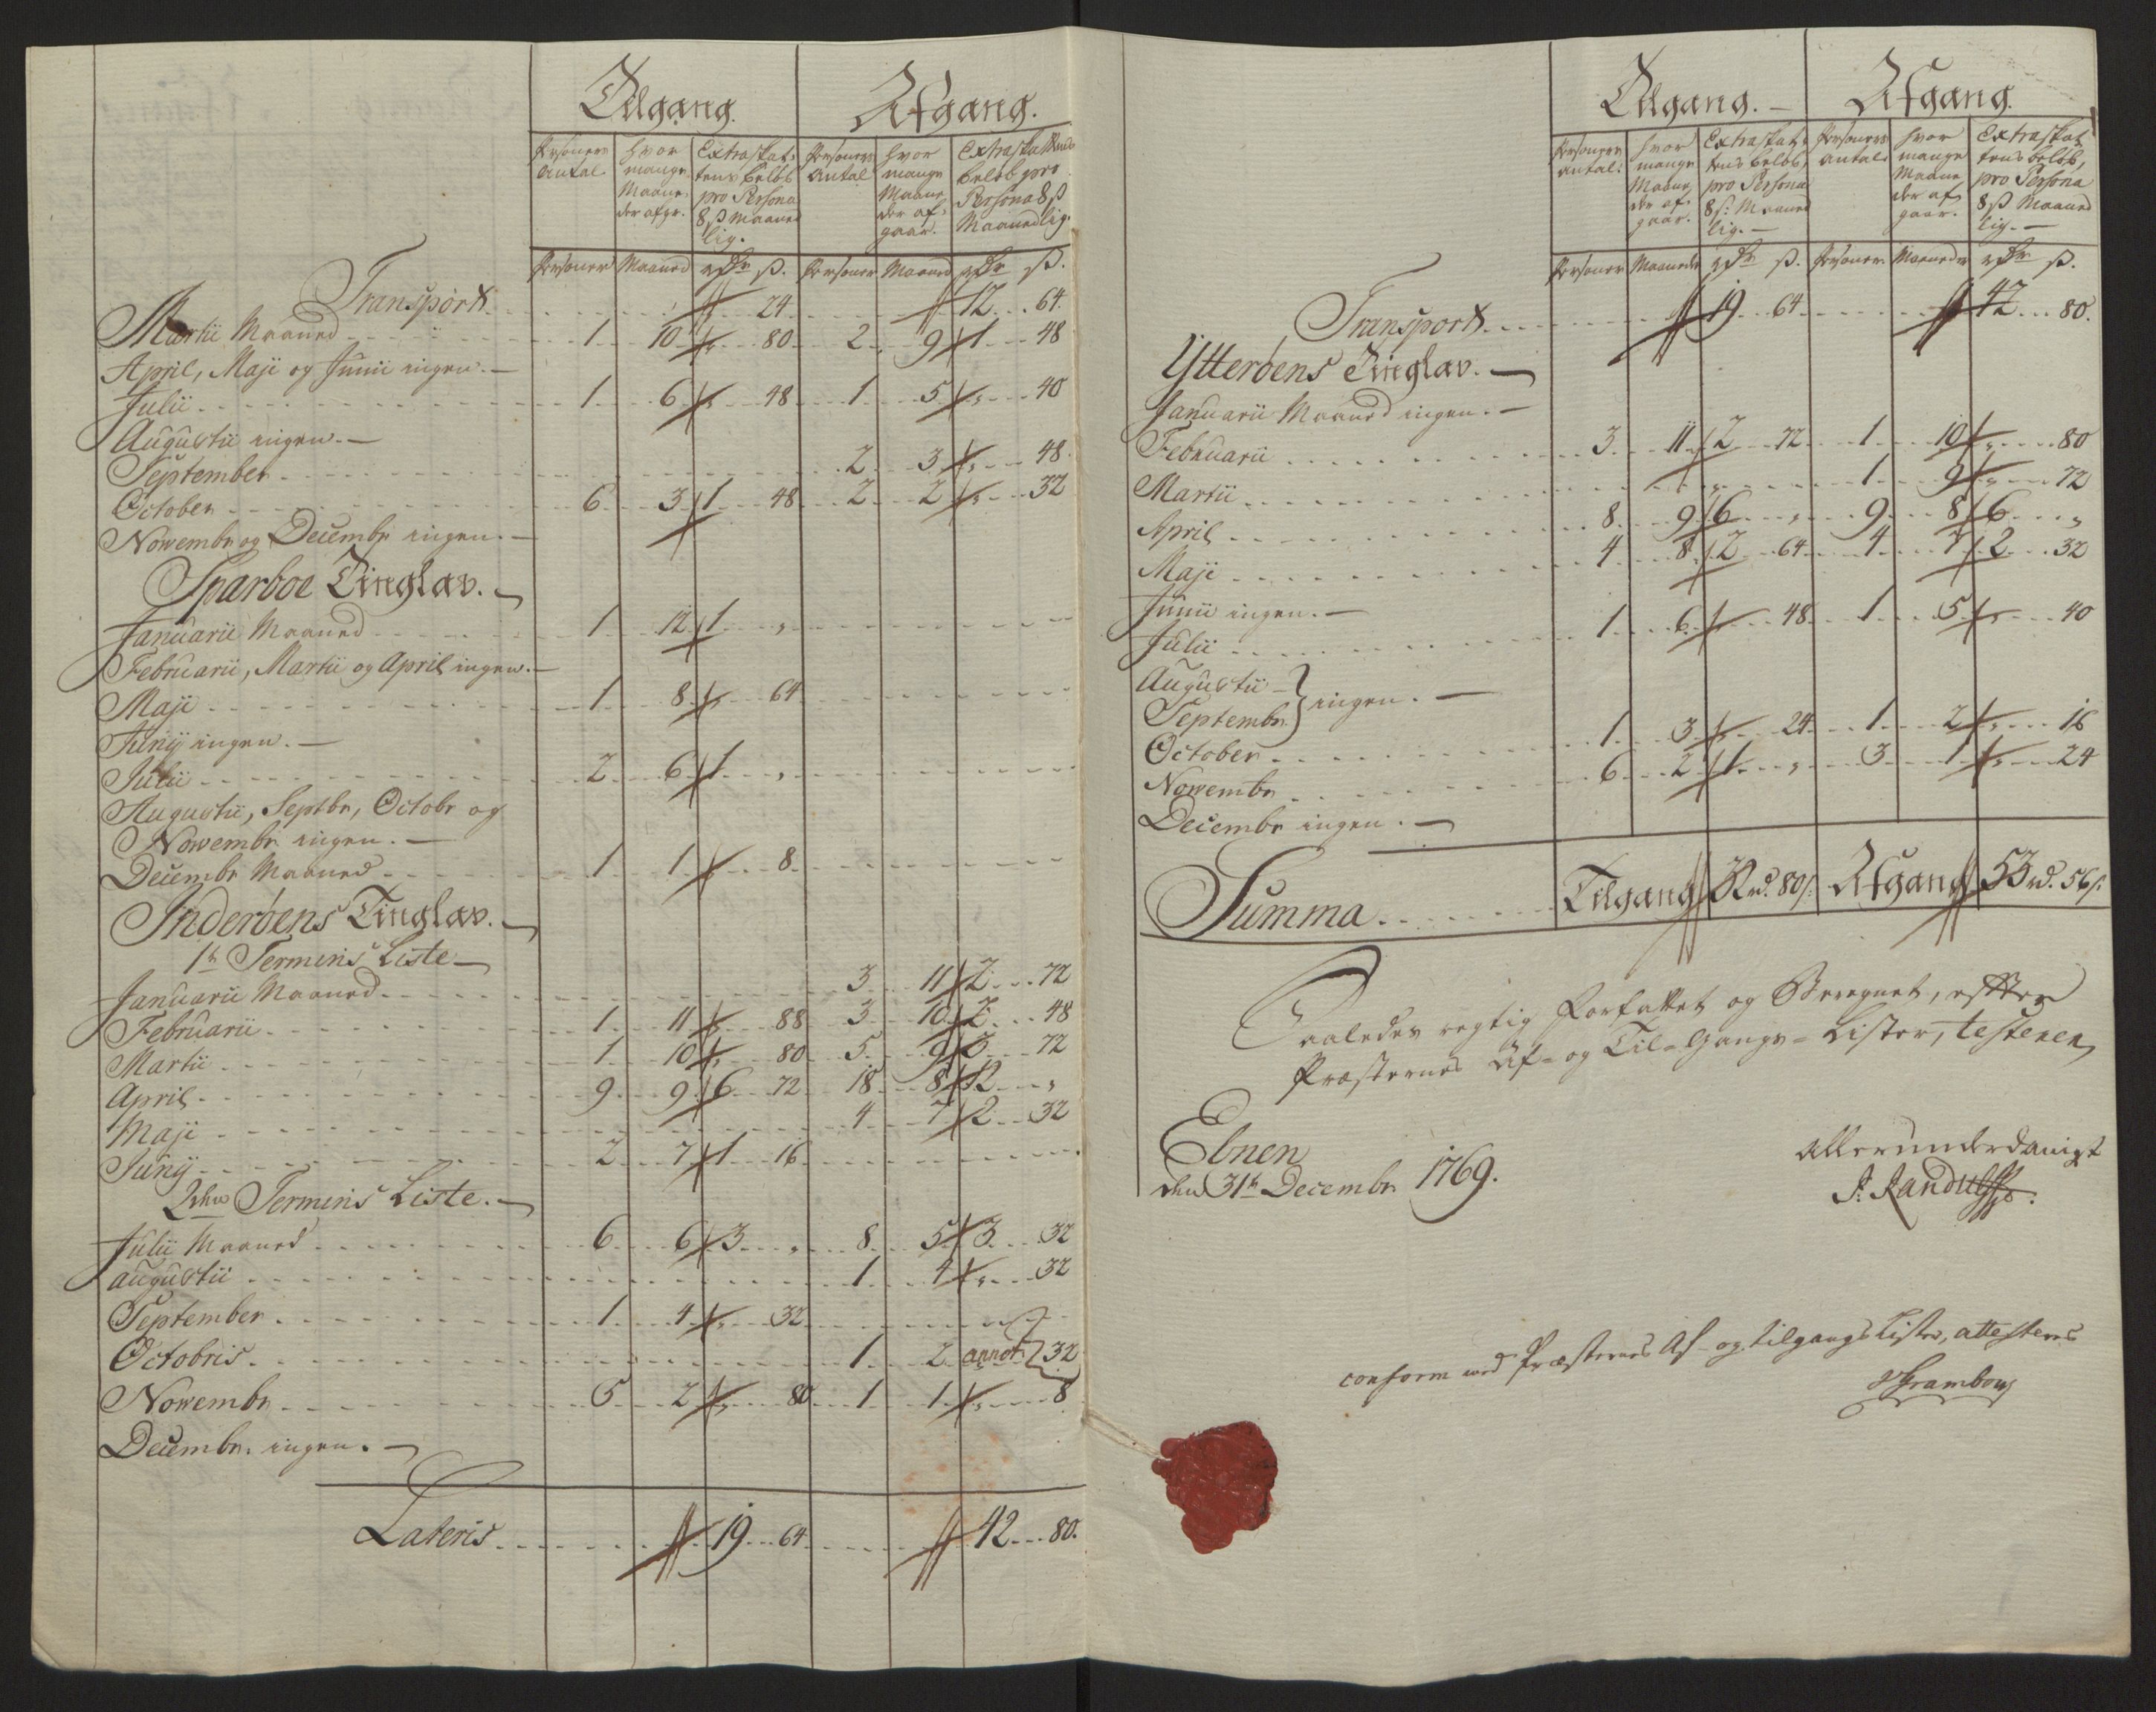 Tilgang. Afgang.
Personers Antal hvor mange Maaneder afgr. Extraskattens beløb pro Persona 8 ß Maanedlig. Personers Antal hvor mange Maaneder afgaar. Extraskattens beløb pro Persona 8 ß Maanedlig.
Personer Maaned rdr ß. Personer Maaned rdr ß.
Transport 24 12 64
Martii Maaned 1 10 " 80 2 9 1 48
April, Maji og Junii ingen.
Julii 1 6 " 48 1 5 " 40
Augustii ingen.
September 2 3 " 48
October 6 3 1 48 2 2 " 32
Novembr og Decembr ingen.
Sparboe Tinglav.
Januarii Maaned 1 12 1 "
Februarii, Martii og April ingen.
Maji 1 8 " 64
Junij ingen.
Julii 2 6 1 "
Augustii, Septbr, Octobr og
Novembr ingen.
Decembr Maaned 1 1 " 8
Inderøens Tinglav.
1te Termins Liste
Januarii Maaned 3 11 2 72
Februarii 1 11 " 88 3 10 2 48
Martii 1 10 " 80 5 9 3 72
April 9 9 6 72 18 8 12 "
Maji 4 7 2 32
Junij 2 7 1 16
2den Termins Liste.
Julii Maaned 6 6 3 " 8 5 3 32
augustii 1 4 " 32
September 1 4 " 32
Octobris 1 2 annot 32
Novembr 5 2 " 80 1 1 " 8
Decembr. ingen.
Lateris 19 64 42 80.
Tilgang. Afgang.
Personers antal: hvor mange Maaneder afgaar. Extraskattens beløb, pro Persona 8 ß: Maanedlig. Personers Antal hvor mange Maaneder afgaar. Extraskattens beløb, pro Persona 8 ß Maanedlig.
Personer Maaneder rdr ß. Personer Maaneder rdr ß.
Transport 19 64 42 80.
Ytterøens Tinglav.
Januarii Maaned ingen.
Februarii 3 11 2 72 1 10 " 80
Martii 1 9 " 72
April 8 9 6 " 9 8 6 "
Maji 4 8 2 64 4 7 2 32
Junii ingen.
Julii 1 6 " 48 1 5 " 40
Augustii
Septembr } ingen.
October 1 3 " 24 1 2 " 16
Novembr 6 2 1 " 3 1 " 24
Decembr ingen.
Summa Tilgang 32 rd. 80 ß: Afgang 53 rd. 56 ß:
Saaledes rigtig Forfattet og Beregnet, efter
Præsternes Af- og Til-Gangs-Lister, testerer
Elnen
den 31te Decembr 1769.
allerunderdanigst
J. Randulff
conform med Præsternes Af- og tilgangs Lister, attesteres